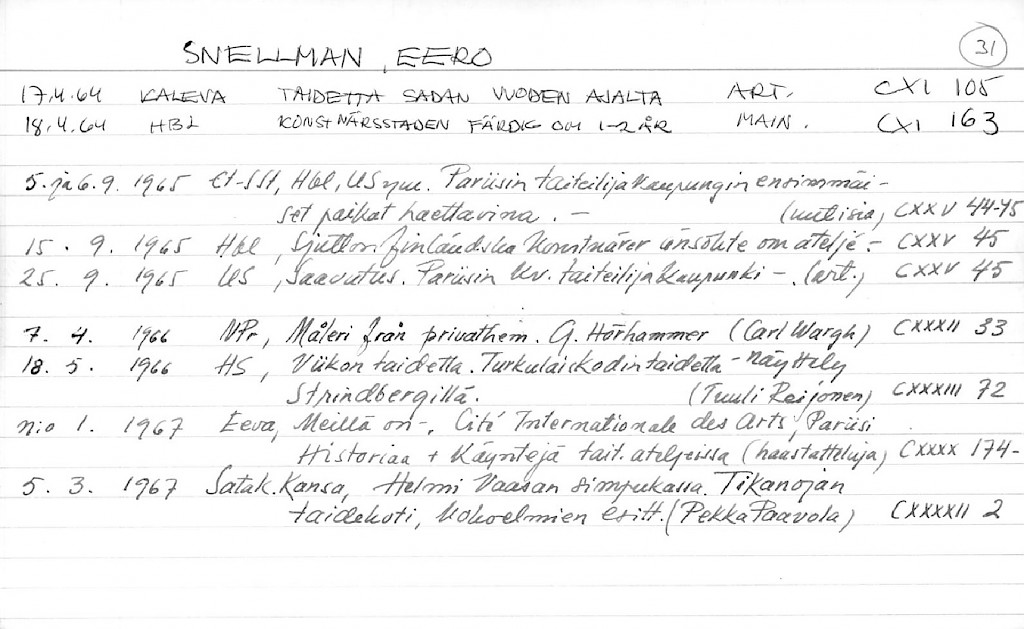 SNELLMAN, EERO 31
17.4.64 KALEVA TAIDETTA SADAN VUODEN AJALTA ART. CXI 105
18.4.64 HBL KONSTNÄRSSTADEN FÄRDIG OM 1-2 ÅR MAIN. CXI 163
5. ja 6.9. 1965 Hbl, US ym. Pariisin taiteilijakaupungin ensimmäi-
set paikat haettavina. - (uutisia) CXXV 44-45
15. 9. 1965 Hbl, Sjutton finländska konstnärer ansökte om ateljé - CXXV 45
25. 9. 1965 US, Saavutus. Pariisin kv. taiteilijakaupunki - (art.) CXXV 45
7. 4. 1966 NPr, Måleri från privathem. G. Hörhammer (Carl Wargh) CXXXII 33
18. 5. 1966 HS, Viikon taidetta. Turkulaiskodin taidetta - näyttely
Strindbergillä. (Tuuli Reijonen) CXXXIII 72
n:o 1. 1967 Eeva, Meillä on -, Cité Internationale des Arts, Pariisi
Historiaa + Käyntejä tait. ateljeissa (haastatteluja) CXXXX 174-
5. 3. 1967 Satak. Kansa, Helmi Vaasan simpukassa. Tikanojan
taidekoti, kokoelmien esitt. (Pekka Paavola) CXXXXII 2